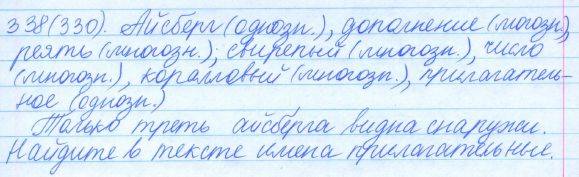 338(330). Айсберг (однозн.), дополнение (могозн.),
реять (многозн.), свирепый (многозн.), число
(многозн.), коралловый (многозн.), прилагатель-
ное (однозн.)
Только треть айсберга видна снаружи.
Найдите в тексте имена прилагательные.